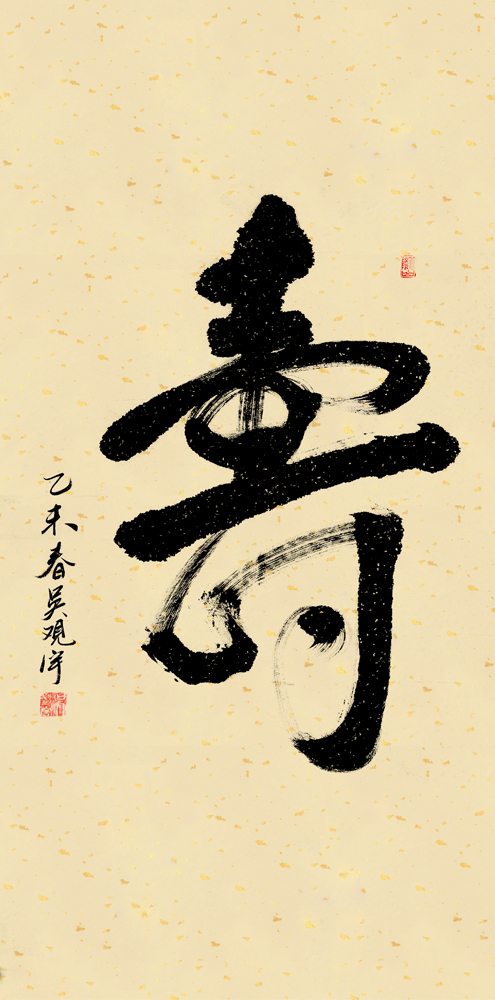 壽
乙未春吴观洋